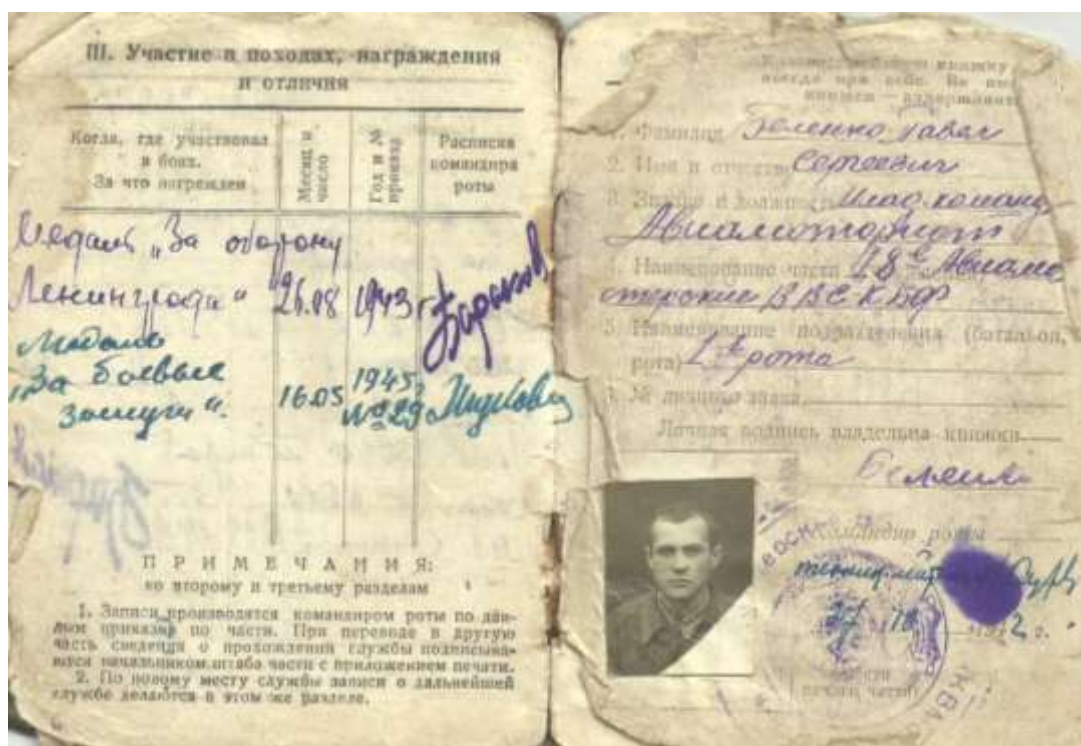 III. Участие в походах, награждения
и отличия
Когда, где участвовал
в боях.
За что награжден
Месяц и
число
Год и №
приказа
Расписка
командира
роты
Медаль „За оборону
Ленинграда“ 26.08 1943 г.
Медаль
„За боевые
заслуги“. 16.05 1945 № 29
ПРИМЕЧАНИЯ:
ко второму и третьему разделам
1. Записи производятся командиром роты по дан-
ным приказов по части. При переводе в другую
часть сведения о прохождении службы подписыва-
ются начальником штаба части с приложением печати.
2. По новому месту службы записи о дальнейшей
службе делаются в этом же разделе.
6
книжку
всегда при себе. Не
1. Фамилия Беленко Павел
2. Имя и отчество Сергеевич
3. Звание и должность Млад. команд.
Авиамоторист
4. Наименование части 18е Авиама
стерские ВВС КБФ
5. Наименование подразделения (батальон,
рота) 1я рота
№ личного знака
Личная подпись владельца книжки
Беленко
Командир роты
27 10 1942 г.
печати части